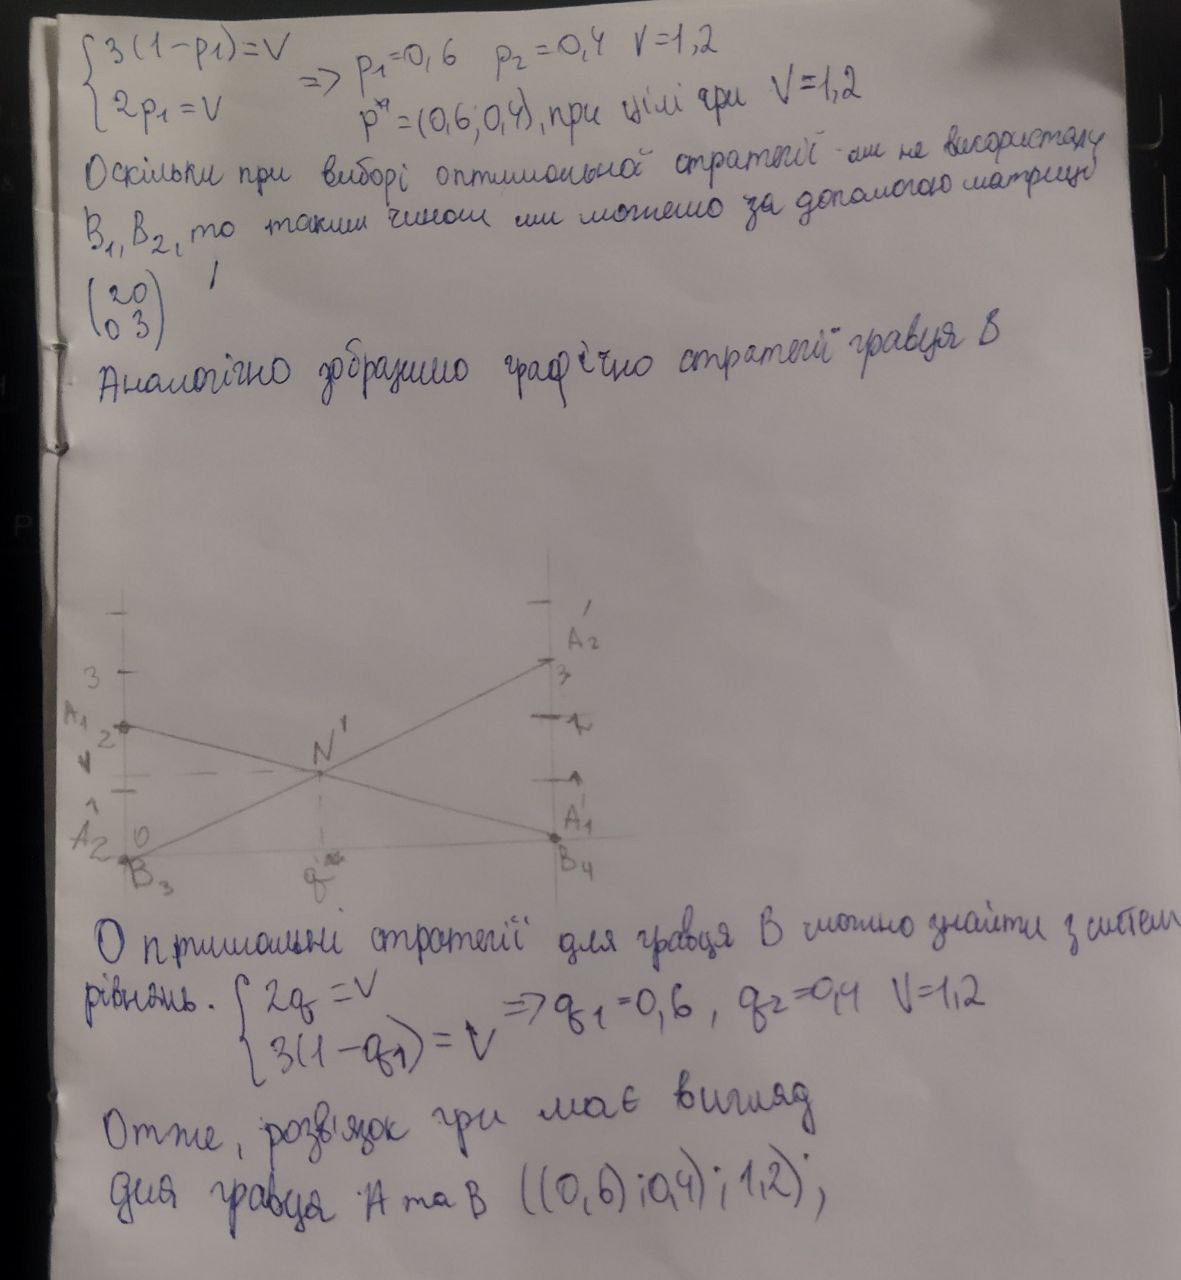 {3(1-p1)=V
{2p1=V => p1=0,6 p2=0,4 V=1,2
p*=(0,6;0,4), при ціні гри V=1,2
Оскільки при виборі оптимальної стратегії ми не використали
B1, B2, то таким чином ми можемо за допомогою матриці
(2 0)
(0 3)
Аналогічно зобразимо графічно стратегії гравця В
A2'
3 3
A1
2 2
N'
V
1 1
A1'
A2 0
B3 q* B4
Оптимальні стратегії для гравця В можно знайти з систем
рівнянь. {2q=V
{3(1-q1)=V => q1=0,6, q2=0,4 V=1,2
Отже, розв'язок гри має вигляд
для гравця А та В ((0,6);0,4); 1,2);